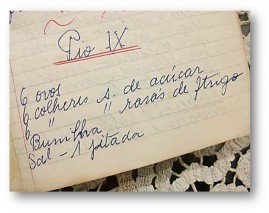 Pio IX
6 ovos
6 colheres s. de açúcar
6 " " rasas de ftrigo
Baunilha
Sal - 1 pitada